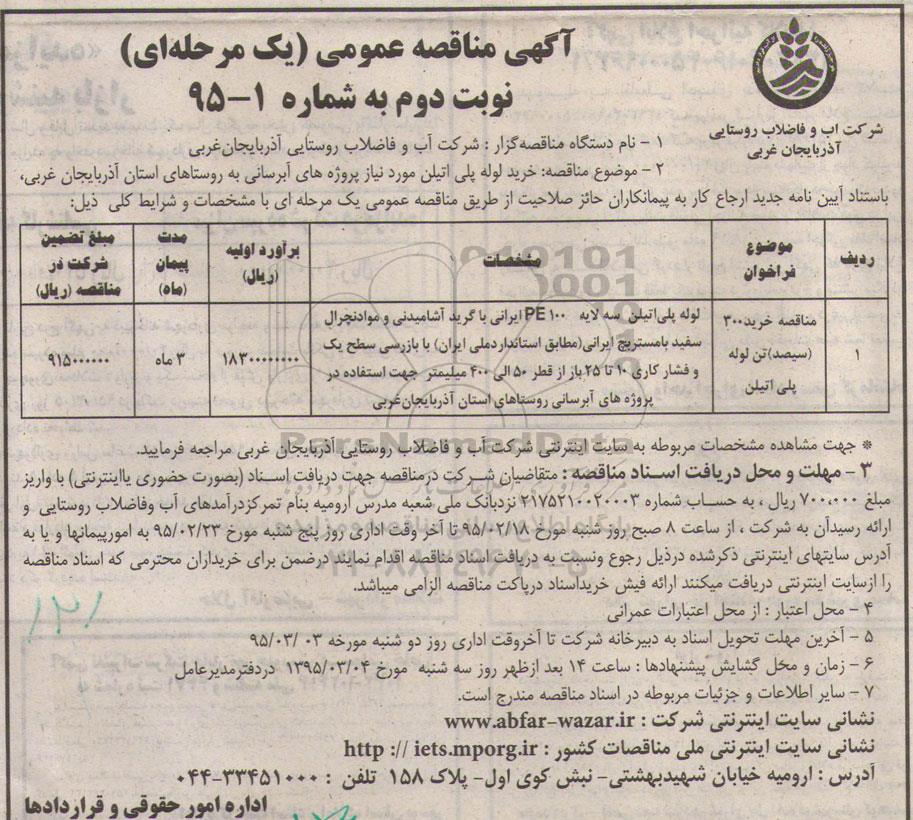 آگهی مناقصه عمومی (یک مرحله‌ای)
نوبت دوم به شماره ۱-۹۵
شرکت آب و فاضلاب روستایی
آذربایجان غربی
۱ – نام دستگاه مناقصه‌گزار : شرکت آب و فاضلاب روستایی آذربایجان‌غربی
۲ – موضوع مناقصه: خرید لوله پلی اتیلن مورد نیاز پروژه های آبرسانی به روستاهای استان آذربایجان غربی،
باستناد آیین نامه جدید ارجاع کار به پیمانکاران حائز صلاحیت از طریق مناقصه عمومی یک مرحله ای با مشخصات و شرایط کلی ذیل:
ردیف
موضوع فراخوان
مشخصات
برآورد اولیه (ریال)
مدت پیمان (ماه)
مبلغ تضمین شرکت در مناقصه (ریال)
۱
مناقصه خرید۳۰۰
(سیصد)تن لوله
پلی اتیلن
لوله پلی‌اتیلن سه لایه PE ۱۰۰ ایرانی با گرید آشامیدنی و موادنچرال
سفید بامستربچ ایرانی(مطابق استانداردملی ایران) با بازرسی سطح یک
و فشار کاری ۱۰ تا ۲۵ بار از قطر ۵۰ الی ۴۰۰ میلیمتر جهت استفاده در
پروژه های آبرسانی روستاهای استان آذربایجان‌غربی
۱۸۳۰۰۰۰۰۰۰۰
۳ ماه
۹۱۵۰۰۰۰۰۰
* جهت مشاهده مشخصات مربوطه به سایت اینترنتی شرکت آب و فاضلاب روستایی آذربایجان غربی مراجعه فرمایید.
۳ – مهلت و محل دریافت اسناد مناقصه : متقاضیان شرکت درمناقصه جهت دریافت اسناد (بصورت حضوری یااینترنتی) با واریز
مبلغ ۷۰۰،۰۰۰ ریال ، به حساب شماره ۲۱۷۵۲۱۰۰۲۰۰۰۳ نزدبانک ملی شعبه مدرس ارومیه بنام تمرکزدرآمدهای آب وفاضلاب روستایی و
ارائه رسیدآن به شرکت ، از ساعت ۸ صبح روز شنبه مورخ ۹۵/۰۲/۱۸ تا آخر وقت اداری روز پنج شنبه مورخ ۹۵/۰۲/۲۳ به امورپیمانها و یا به
آدرس سایتهای اینترنتی ذکرشده درذیل رجوع ونسبت به دریافت اسناد مناقصه اقدام نمایند.درضمن برای خریداران محترمی که اسناد مناقصه
را ازسایت اینترنتی دریافت میکنند ارائه فیش خریداسناد درپاکت مناقصه الزامی میباشد.
۴ – محل اعتبار : از محل اعتبارات عمرانی
۵ – آخرین مهلت تحویل اسناد به دبیرخانه شرکت تا آخروقت اداری روز دو شنبه مورخه ۹۵/۰۳/۰۳
۶ – زمان و محل گشایش پیشنهادها : ساعت ۱۴ بعد ازظهر روز سه شنبه مورخ ۱۳۹۵/۰۳/۰۴ دردفترمدیرعامل
۷ – سایر اطلاعات و جزئیات مربوطه در اسناد مناقصه مندرج است.
نشانی سایت اینترنتی شرکت : www.abfar-wazar.ir
نشانی سایت اینترنتی ملی مناقصات کشور : http :// iets.mporg.ir
آدرس : ارومیه خیابان شهیدبهشتی- نبش کوی اول- پلاک ۱۵۸ تلفن : ۳۳۴۵۱۰۰۰-۰۴۴
اداره امور حقوقی و قراردادها
ParsNamadData
۱۲۱